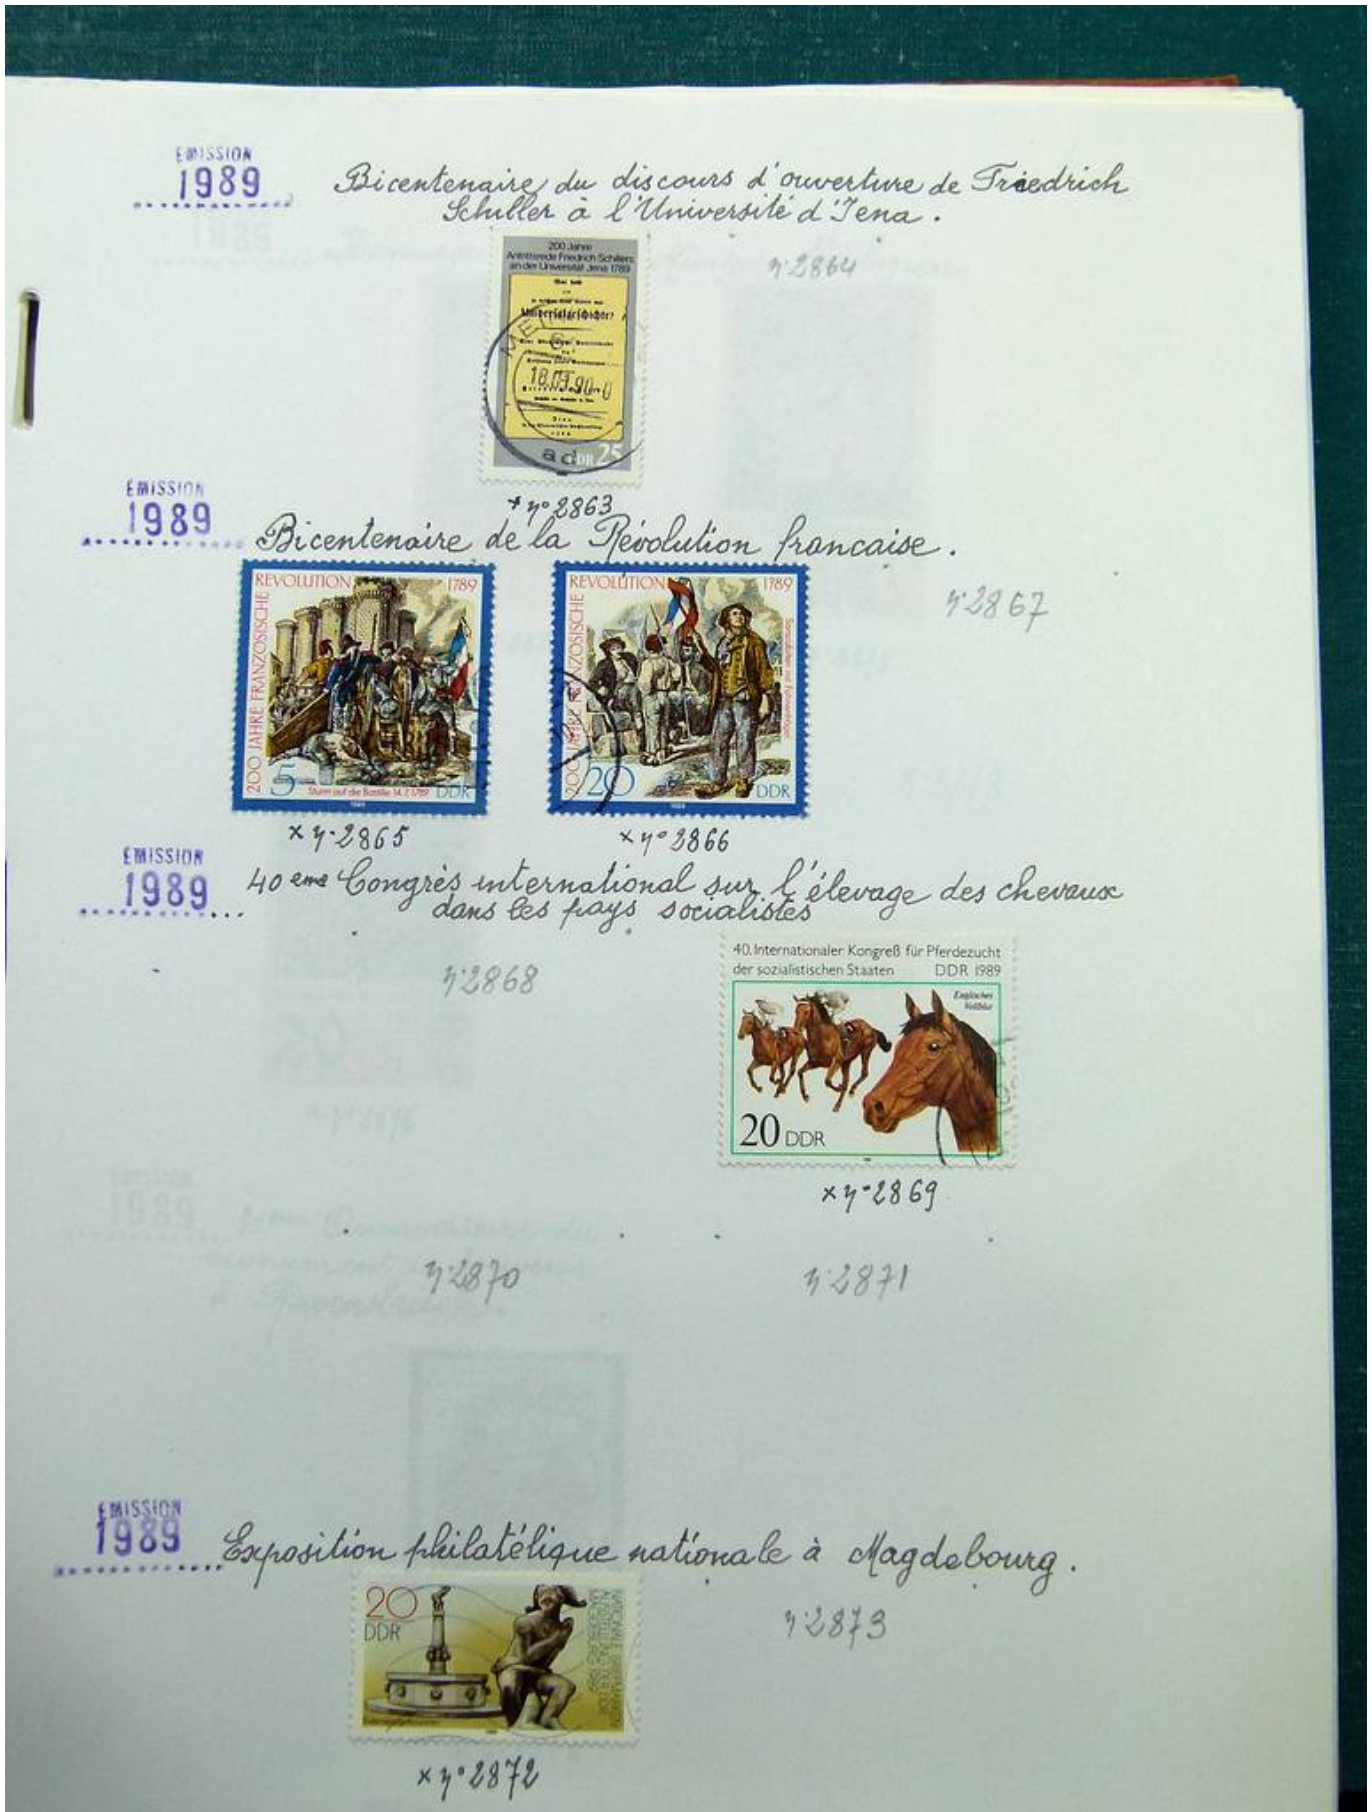 EMISSION
1989
Bicentenaire du discours d'ouverture de Friedrich
Schiller à l'Université d'Iena.
n°2864
200 Jahre
Antrittsrede Friedrich Schillers
an der Universität Jena 1789
Universalgeschichte?
18.09.90
ad
DDR 25
x n°2863
EMISSION
1989
Bicentenaire de la Révolution francaise.
n°2867
200 JAHRE FRANZÖSISCHE
REVOLUTION 1789
5
Sturm auf die Bastille 14.7.1789
DDR
1989
200 JAHRE FRANZÖSISCHE
REVOLUTION 1789
20
DDR
1989
x n°2865
x n°2866
EMISSION
1989
40eme Congrès international sur l'élevage des chevaux
dans les pays socialistes
n°2868
40. Internationaler Kongreß für Pferdezucht
der sozialistischen Staaten DDR 1989
Englisches
Vollblut
20 DDR
x n°2869
n°2870
n°2871
EMISSION
1989
Exposition philatélique nationale à Magdebourg.
n°2873
20
DDR
x n°2872